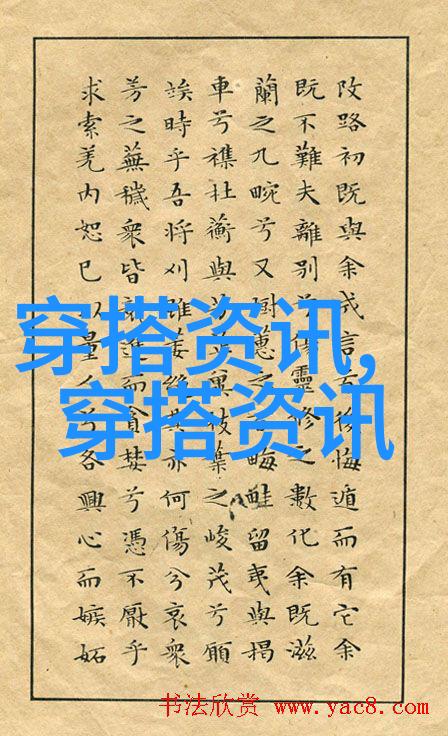 攺路初既與余成言兮後悔遁而有它余
既不難夫離別兮傷靈修之數化余既滋
蘭之九畹兮又樹蕙之百畮畦留夷與揭
車兮襍杜蘅與芳芷冀枝葉之峻茂兮願
竢時乎吾將刈雖萎絶其亦何傷兮哀衆
芳之蕪穢衆皆競進而貪婪兮憑不厭乎
求索羌内恕已以量人兮各興心而嫉妬
穿搭资讯,
穿搭资讯
书法欣赏 www.yac8.com